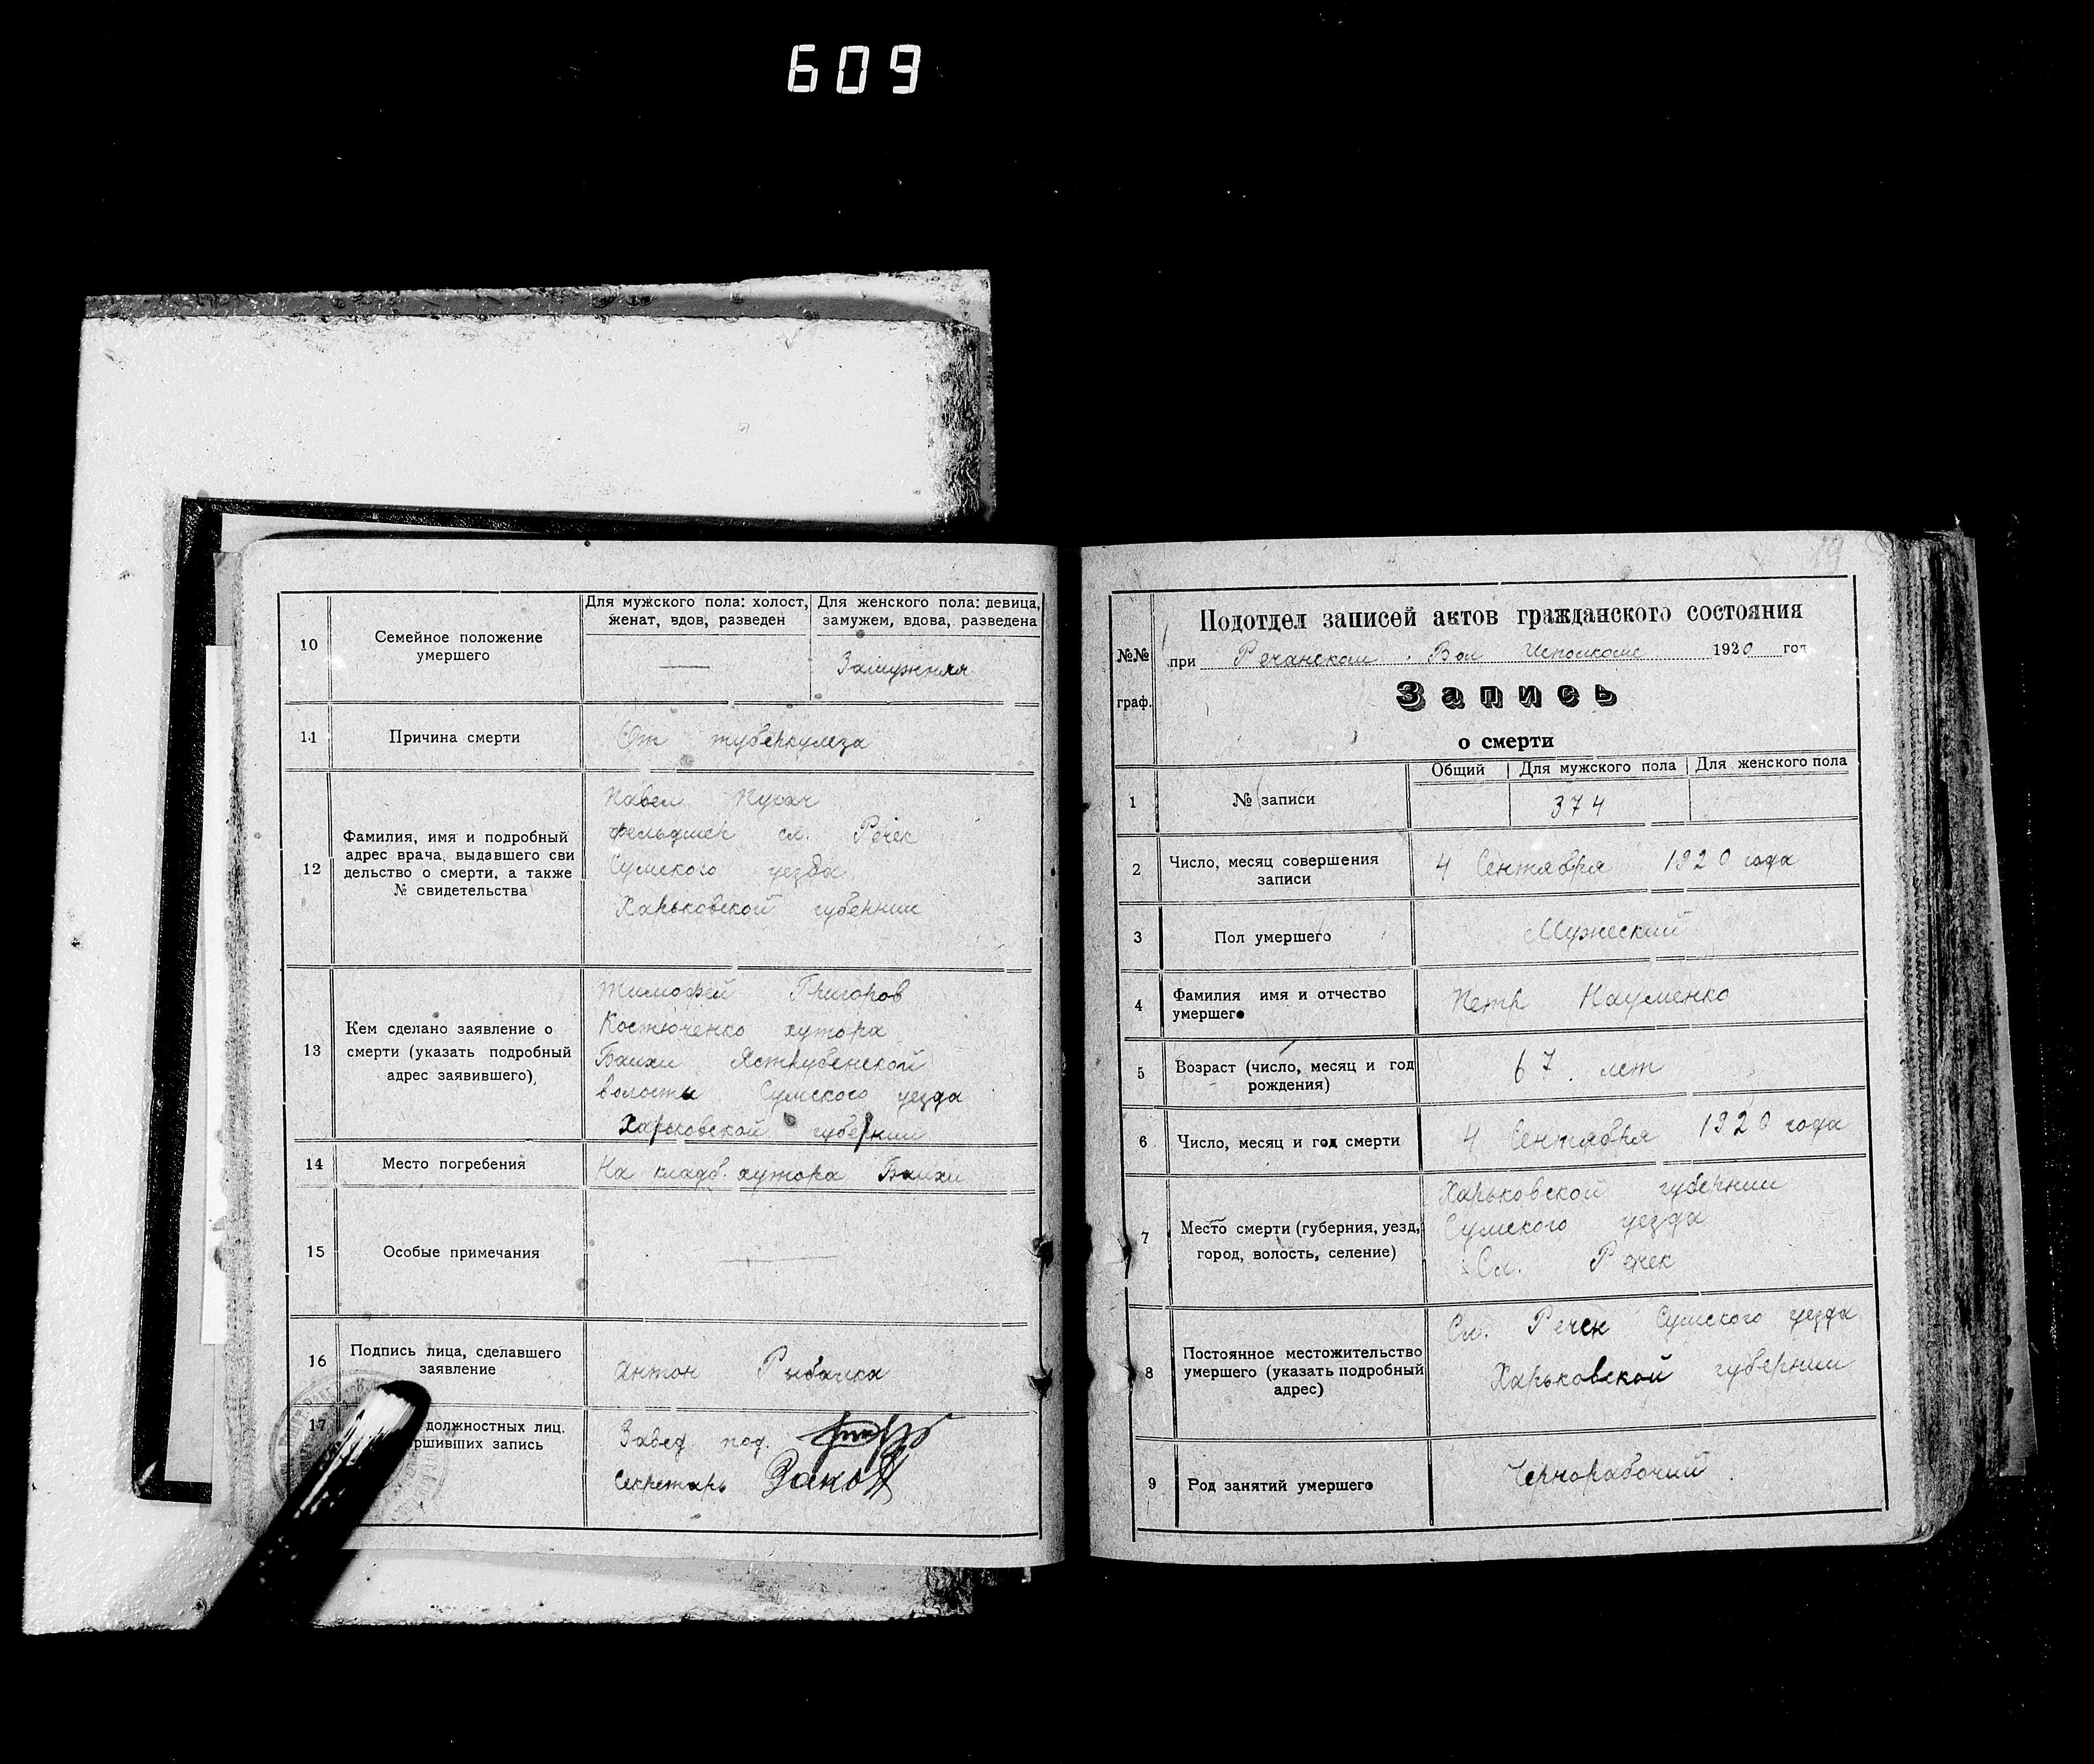 609
10
Семейное положение
умершего
Для мужского пола: холост,
женат, вдов, разведен
Для женского пола: девица,
замужем, вдова, разведена
Замужняя
11
Причина смерти
От туберкулеза
12
Фамилия, имя и подробный
адрес врача, выдавшего сви
дельство о смерти, а также
№ свидетельства
Павел Пугач
фельдшер сл. Речек
Сумского уезда
Харьковской губернии
13
Кем сделано заявление о
смерти (указать подробный
адрес заявившего)
Тимофей Григоров
Костюченко хутора
волости Сумского уезда
Харьковской губернии
14
Место погребения
На кладб. хутора
15
Особые примечания
16
Подпись лица, сделавшего
заявление
Антон
17
должностных лиц,
ршивших запись
Завед. под.
Секретарь
19
№№
граф.
Подотдел записей актов гражданского состояния
при Речанском Вол Исполкоме 1920 год
Запись
о смерти
1
№ записи
Общий
Для мужского пола
Для женского пола
374
2
Число, месяц совершения
записи
4 Сентября 1920 года
3
Пол умершего
Мужеский
4
Фамилия имя и отчество
умершего
Петр Науменко
5
Возраст (число, месяц и год
рождения)
67 лет
6
Число, месяц и год смерти
4 Сентября 1920 года
7
Место смерти (губерния, уезд,
город, волость, селение)
Харьковской губернии
Сумского уезда
Сл. Речек
8
Постоянное местожительство
умершего (указать подробный
адрес)
Сл. Речек Сумского уезда
Харьковской губернии
9
Род занятий умершего
Чернорабочий